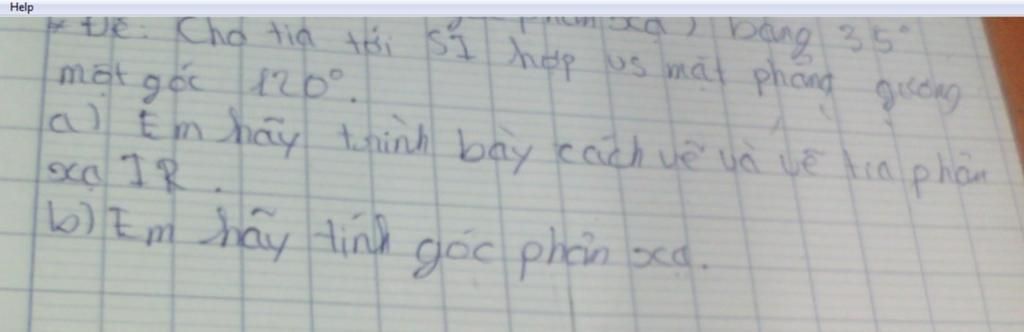 Help
phản xạ) bằng 35°
* Đề: Cho tia tới SI hợp vs mặt phẳng gương
một góc 120°.
a) Em hãy trình bày cách vẽ và vẽ tia phản
xạ IR.
b) Em hãy tính góc phản xạ.